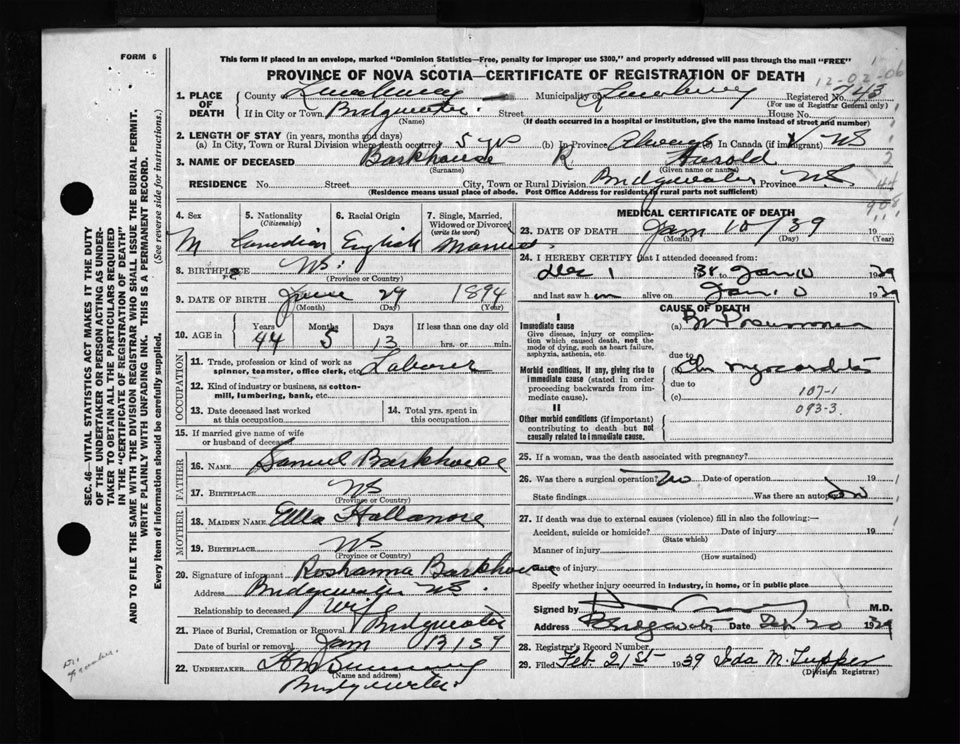 FORM 6
This form if placed in an envelope, marked "Dominion Statistics—Free, penalty for improper use $300," and properly addressed will pass through the mail "FREE"
PROVINCE OF NOVA SCOTIA—CERTIFICATE OF REGISTRATION OF DEATH
12-02-06
1. PLACE OF DEATH
County Lunenburg Municipality of Lunenburg Registered No. 743
(For use of Registrar General only)
If in City or Town Bridgewater Street House No.
(Name) (If death occurred in a hospital or institution, give the name instead of street and number)
2. LENGTH OF STAY (in years, months and days)
(a) In City, Town or Rural Division where death occurred 5 yrs (b) In Province Always (c) In Canada (if immigrant) NS
3. NAME OF DECEASED Barkhouse R Harold
(Surname) (Given name or names)
RESIDENCE No. Street City, Town or Rural Division Bridgewater Province N.S.
(Residence means usual place of abode. Post Office Address for residents in rural parts not sufficient)
4. Sex M
5. Nationality (Citizenship) Canadian
6. Racial Origin English
7. Single, Married, Widowed or Divorced (write the word) Married
8. BIRTHPLACE NS.
(Province or Country)
9. DATE OF BIRTH June 29 1894
(Month) (Day) (Year)
10. AGE in Years 44 Months 5 Days 13 If less than one day old hrs. or min.
OCCUPATION
11. Trade, profession or kind of work as spinner, teamster, office clerk, etc. Laborer
12. Kind of industry or business, as cotton-mill, lumbering, bank, etc.
13. Date deceased last worked at this occupation
14. Total yrs. spent in this occupation
15. If married give name of wife or husband of deceased
FATHER
16. NAME Samuel Barkhouse
17. BIRTHPLACE NS
(Province or Country)
MOTHER
18. MAIDEN NAME Ella
19. BIRTHPLACE NS
(Province or Country)
20. Signature of informant Roshanna Barkhouse
Address Bridgewater NS.
Relationship to deceased Wife
21. Place of Burial, Cremation or Removal Bridgewater
Date of burial or removal Jan 13 / 39
22. UNDERTAKER
(Name and address)
Bridgewater.
MEDICAL CERTIFICATE OF DEATH
23. DATE OF DEATH Jan 10/39 19
(Month) (Day) (Year)
24. I HEREBY CERTIFY that I attended deceased from:
Dec 1 38 to Jan 10 1939
and last saw him alive on Jan. 10 1939
CAUSE OF DEATH
I
Immediate cause
Give disease, injury or complication which caused death, not the mode of dying, such as heart failure, asphyxia, asthenia, etc.
(a) Br Pneumonia
due to
Morbid conditions, if any, giving rise to immediate cause (stated in order proceeding backwards from immediate cause).
Chr myocarditis
due to
(c) 107-1
093-3
II
Other morbid conditions (if important) contributing to death but not causally related to immediate cause.
25. If a woman, was the death associated with pregnancy?
26. Was there a surgical operation? No Date of operation 19
State findings Was there an autopsy? No
27. If death was due to external causes (violence) fill in also the following:—
Accident, suicide or homicide? Date of injury 19
(State which)
Manner of injury
(How sustained)
Nature of injury
Specify whether injury occurred in industry, in home, or in public place
Signed by M.D.
Address Bridgewater Date 20 1939
28. Registrar's Record Number
29. Filed Feb 21st 1939 Ida M. Tupper
(Division Registrar)
SEC. 46—VITAL STATISTICS ACT MAKES IT THE DUTY
OF THE UNDERTAKER OR PERSON ACTING AS UNDER-
TAKER TO OBTAIN ALL THE PARTICULARS REQUIRED
IN THE "CERTIFICATE OF REGISTRATION OF DEATH"
AND TO FILE THE SAME WITH THE DIVISION REGISTRAR WHO SHALL ISSUE THE BURIAL PERMIT.
WRITE PLAINLY WITH UNFADING INK. THIS IS A PERMANENT RECORD.
Every item of information should be carefully supplied. (See reverse side for instructions.)